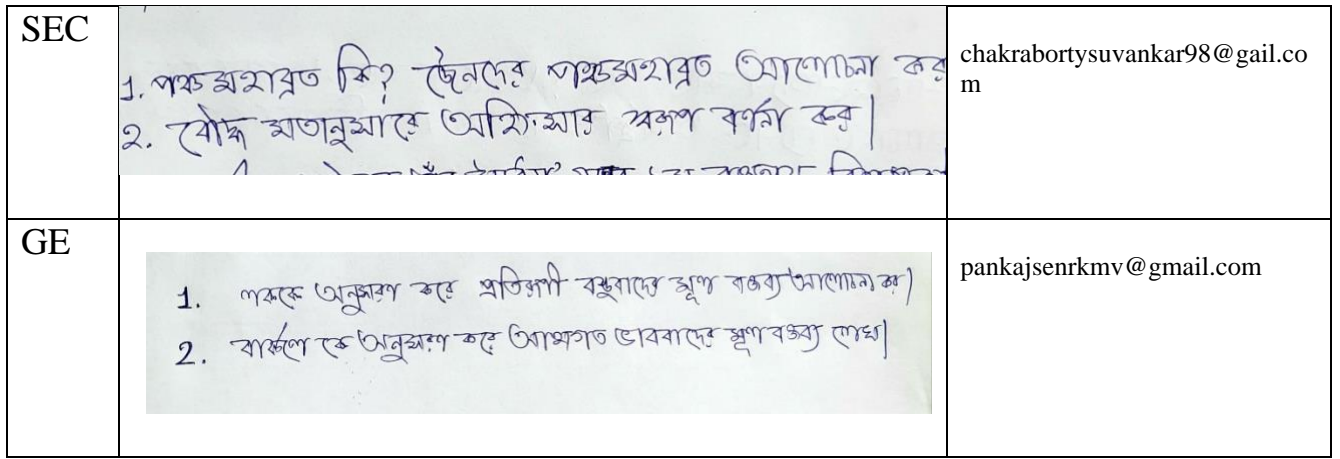 SEC
1. পঞ্চমহাব্রত কি? জৈনদের পঞ্চমহাব্রত আলোচনা কর
2. বৌদ্ধ মতানুসারে অহিংসার স্বরূপ বর্ণনা কর|
chakrabortysuvankar98@gail.co
m
GE
1. লককে অনুসরণ করে প্রতিরূপী বস্তুবাদের মূল বক্তব্য আলোচনা কর|
2. বার্কলে কে অনুসরণ করে আত্মগত ভাববাদের মূল বক্তব্য লেখ|
pankajsenrkmv@gmail.com